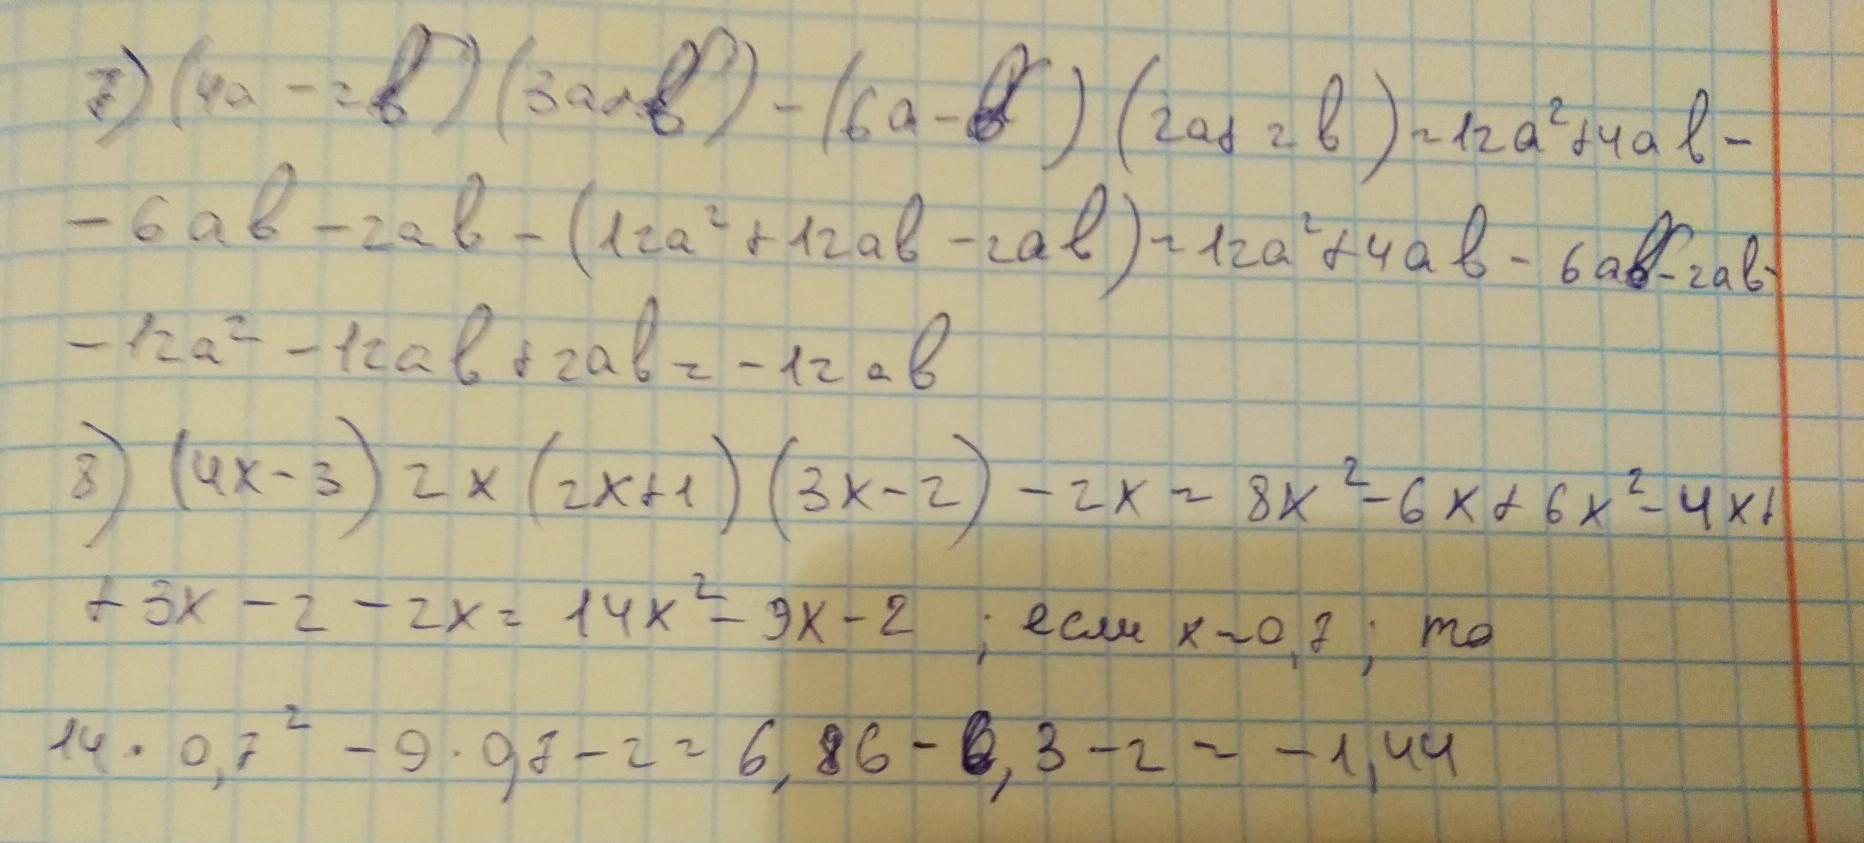 7) (4a - 2в) (3a+в) - (6a - в) (2a + 2в) = 12a² + 4aв -
- 6aв - 2aв - (12a² + 12aв - 2aв) = 12a² + 4aв - 6aв - 2aв -
- 12a² - 12aв + 2aв = - 12aв
8) (4x - 3) 2x (2x+1) (3x - 2) - 2x = 8x² - 6x + 6x² - 4x +
+ 3x - 2 - 2x = 14x² - 9x - 2 ; если x = 0,7 ; то
14 · 0,7² - 9 · 0,7 - 2 = 6,86 - 6,3 - 2 = - 1,44